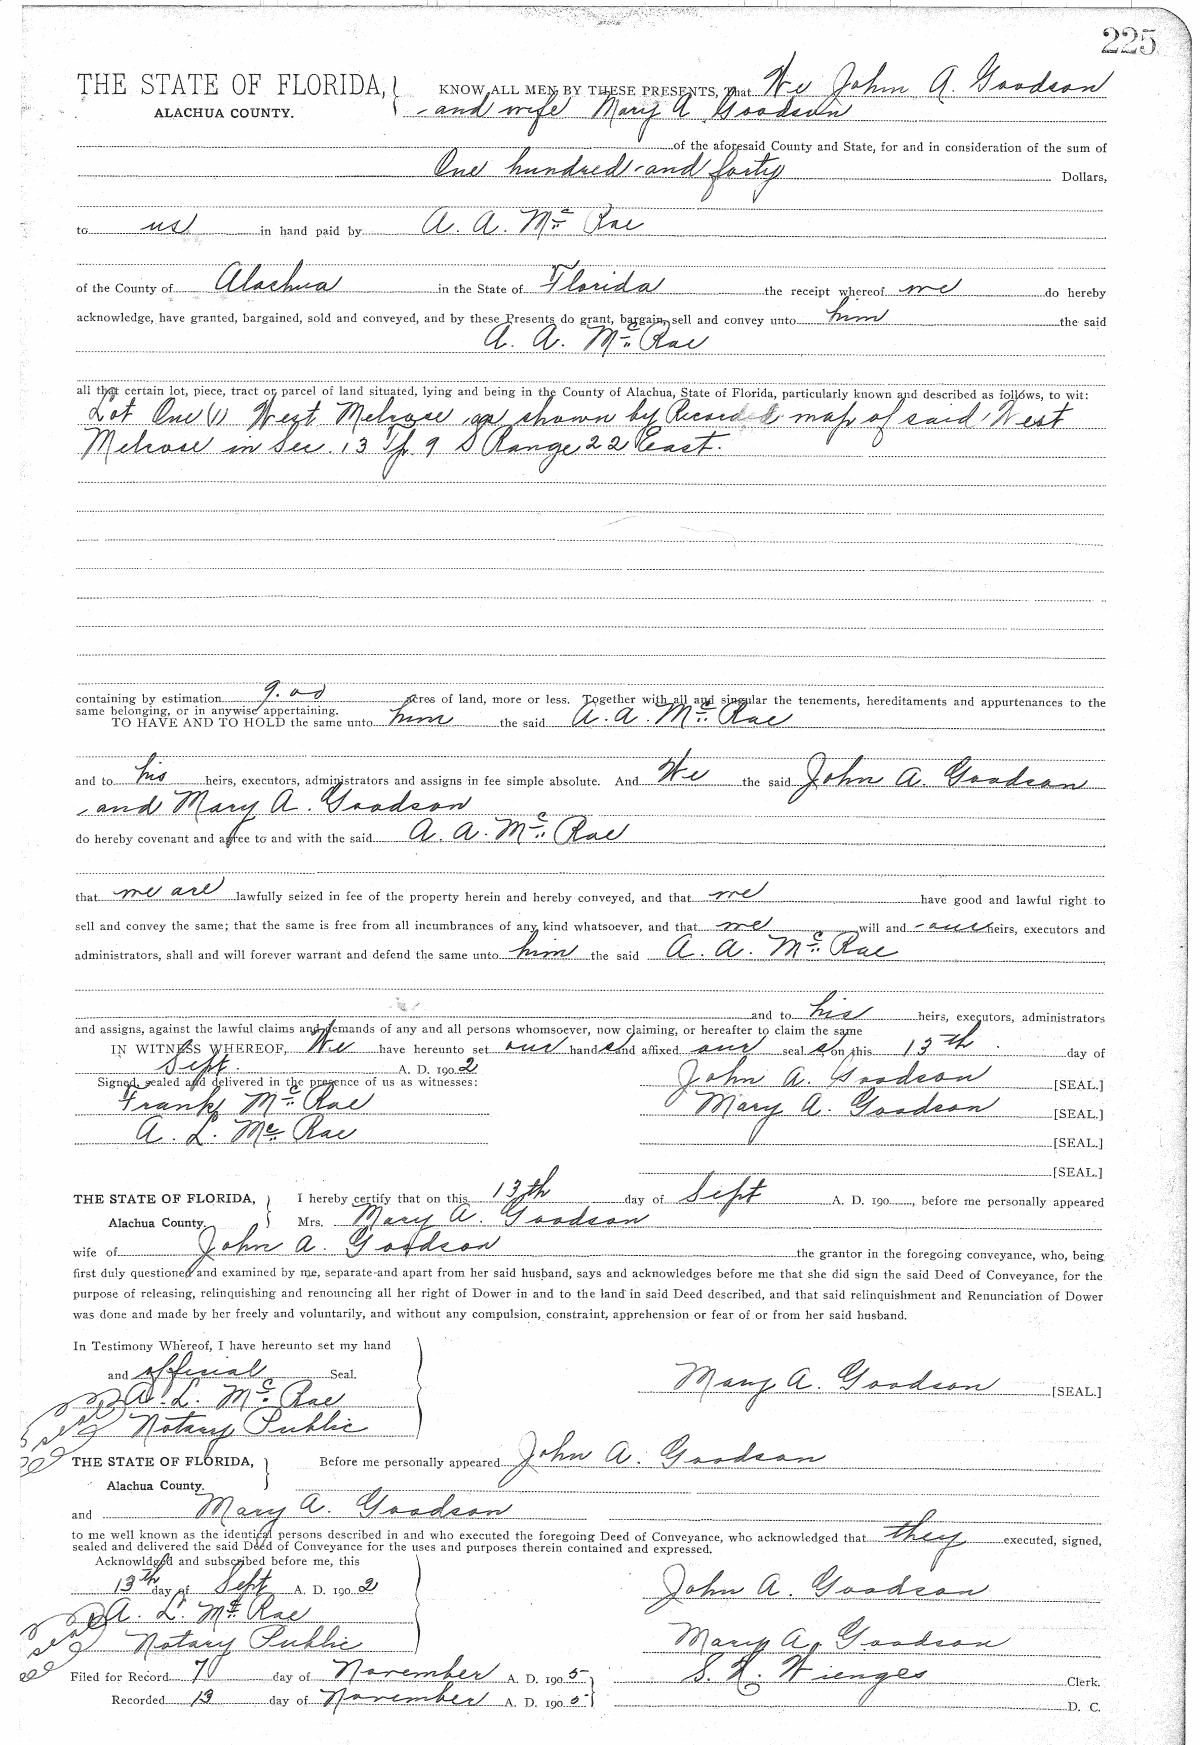 225
THE STATE OF FLORIDA, KNOW ALL MEN BY THESE PRESENTS, That We John A. Goodson
ALACHUA COUNTY. and wife Mary A Goodson
of the aforesaid County and State, for and in consideration of the sum of
One hundred and forty Dollars,
to us in hand paid by A. A. McRae
of the County of Alachua in the State of Florida the receipt whereof we do hereby
acknowledge, have granted, bargained, sold and conveyed, and by these Presents do grant, bargain, sell and convey unto him the said
A. A. McRae
all that certain lot, piece, tract or parcel of land situated, lying and being in the County of Alachua, State of Florida, particularly known and described as follows, to wit:
Lot One (1) West Melrose as shown by Recorded map of said West
Melrose in Sec. 13 Tp. 9 S Range 22 East.
containing by estimation acres of land, more or less. Together with all and singular the tenements, hereditaments and appurtenances to the
same belonging, or in anywise appertaining.
TO HAVE AND TO HOLD the same unto him the said A. A. McRae
and to his heirs, executors, administrators and assigns in fee simple absolute. And We the said John A. Goodson
and Mary A. Goodson
do hereby covenant and agree to and with the said A. A. McRae
that we are lawfully seized in fee of the property herein and hereby conveyed, and that we have good and lawful right to
sell and convey the same; that the same is free from all incumbrances of any kind whatsoever, and that we will and our heirs, executors and
administrators, shall and will forever warrant and defend the same unto him the said A. A. McRae
and to his heirs, executors, administrators
and assigns, against the lawful claims and demands of any and all persons whomsoever, now claiming, or hereafter to claim the same
IN WITNESS WHEREOF, We have hereunto set our hands and affixed our seals on this 13th day of
Sept. A. D. 1902
Signed, sealed and delivered in the presence of us as witnesses: John A. Goodson [SEAL.]
Frank McRae Mary A. Goodson [SEAL.]
A. L. McRae [SEAL.]
[SEAL.]
THE STATE OF FLORIDA, I hereby certify that on this 13th day of Sept A. D. 190 , before me personally appeared
Alachua County. Mrs. Mary A. Goodson
wife of John A. Goodson the grantor in the foregoing conveyance, who, being
first duly questioned and examined by me, separate and apart from her said husband, says and acknowledges before me that she did sign the said Deed of Conveyance, for the
purpose of releasing, relinquishing and renouncing all her right of Dower in and to the land in said Deed described, and that said relinquishment and Renunciation of Dower
was done and made by her freely and voluntarily, and without any compulsion, constraint, apprehension or fear of or from her said husband.
In Testimony Whereof, I have hereunto set my hand
and official Seal. Mary A. Goodson [SEAL.]
A. L. McRae
seal Notary Public
THE STATE OF FLORIDA, Before me personally appeared John A. Goodson
Alachua County.
and Mary A. Goodson
to me well known as the identical persons described in and who executed the foregoing Deed of Conveyance, who acknowledged that they executed, signed,
sealed and delivered the said Deed of Conveyance for the uses and purposes therein contained and expressed.
Acknowledged and subscribed before me, this
13th day of Sept A. D. 1902 John A. Goodson
A. L. McRae
seal Notary Public Mary A. Goodson
Filed for Record 7 day of November A. D. 1905 S. H. Wienges Clerk.
Recorded 13 day of November A. D. 1905 D. C.